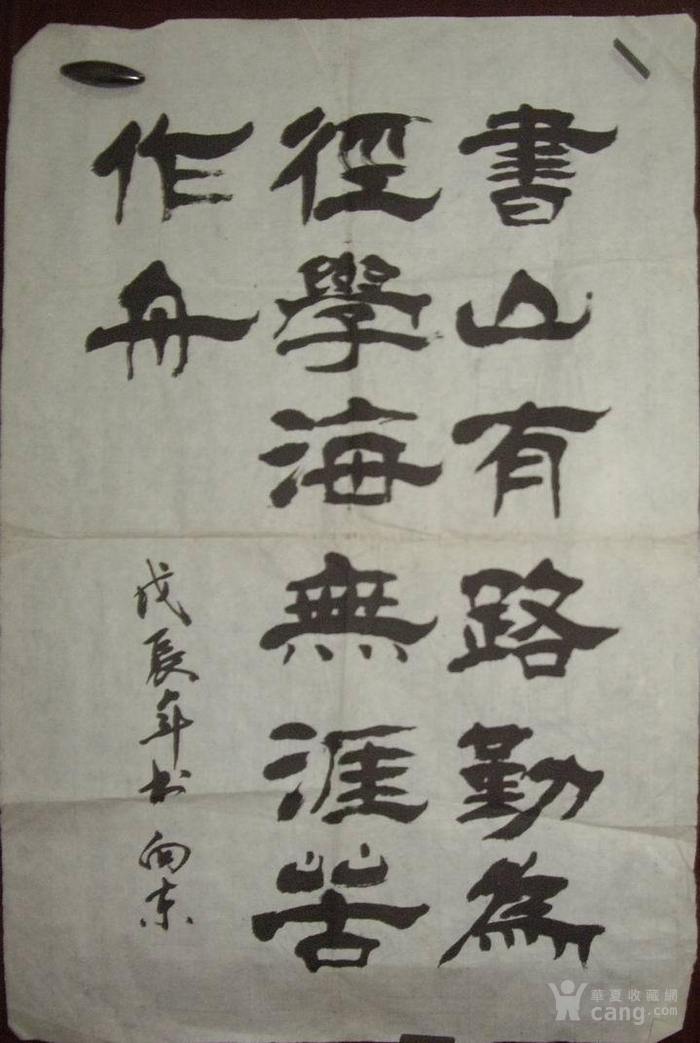 書山有路勤為
徑學海無涯苦
作舟
戊辰年书向东
華夏收藏網
cang.com